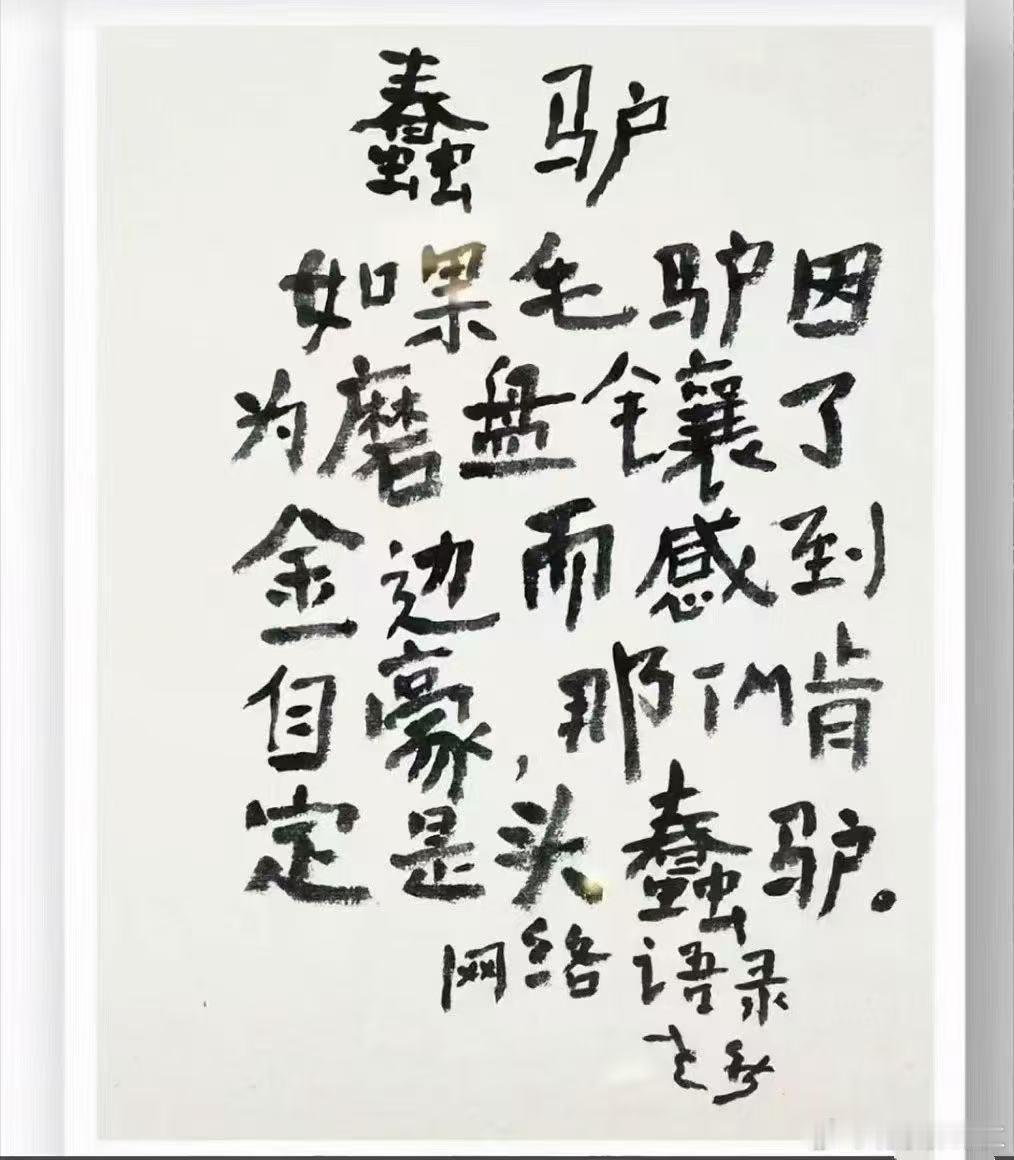 蠢驴
如果毛驴因
为磨盘镶了
金边而感到
自豪，那你肯
定是头蠢驴。
网络语录